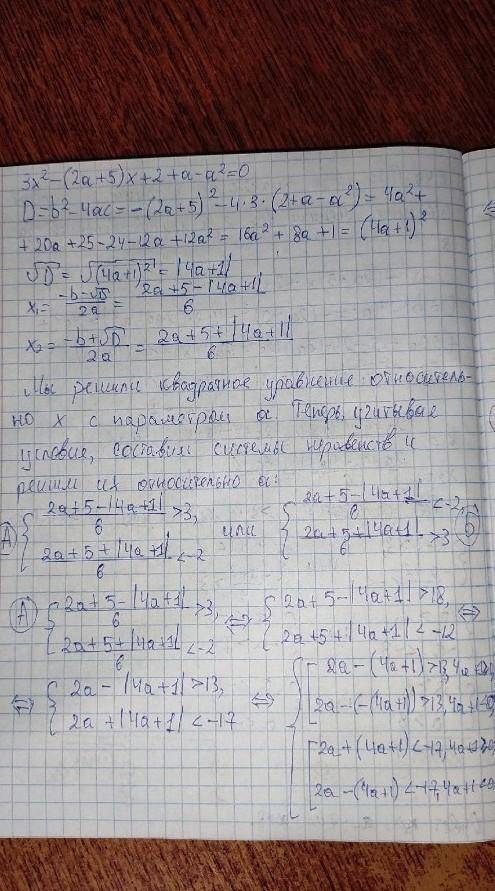 3x²-(2a+5)x+2+a-a²=0
D=b²-4ac=-(2a+5)²-4·3·(2+a-a²)=4a²+
+20a+25-24-12a+12a²=16a²+8a+1=(4a+1)²
√D=√(4a+1)²=|4a+1|
x₁=(-b-√D)/2a=(2a+5-|4a+1|)/6
x₂=(-b+√D)/2a=(2a+5+|4a+1|)/6
Мы решили квадратное уравнение относитель-
но x с параметром a. Теперь, учитывая
условия, составим системы неравенств и
решим их относительно a:
А) { (2a+5-|4a+1|)/6>3, или { (2a+5-|4a+1|)/6<-2, Б
(2a+5+|4a+1|)/6<-2 (2a+5+|4a+1|)/6>3
А) { (2a+5-|4a+1|)/6>3, ⇔ { 2a+5-|4a+1|>18, ⇔
(2a+5+|4a+1|)/6<-2 2a+5+|4a+1|<-12
⇔ { 2a-|4a+1|>13, ⇔ { [ 2a-(4a+1)>13,
2a+|4a+1|<-17 2a-(-(4a+1))>13, 4a+1<0
[ 2a+(4a+1)<-17,
2a-(4a+1)<-17, 4a+1<0